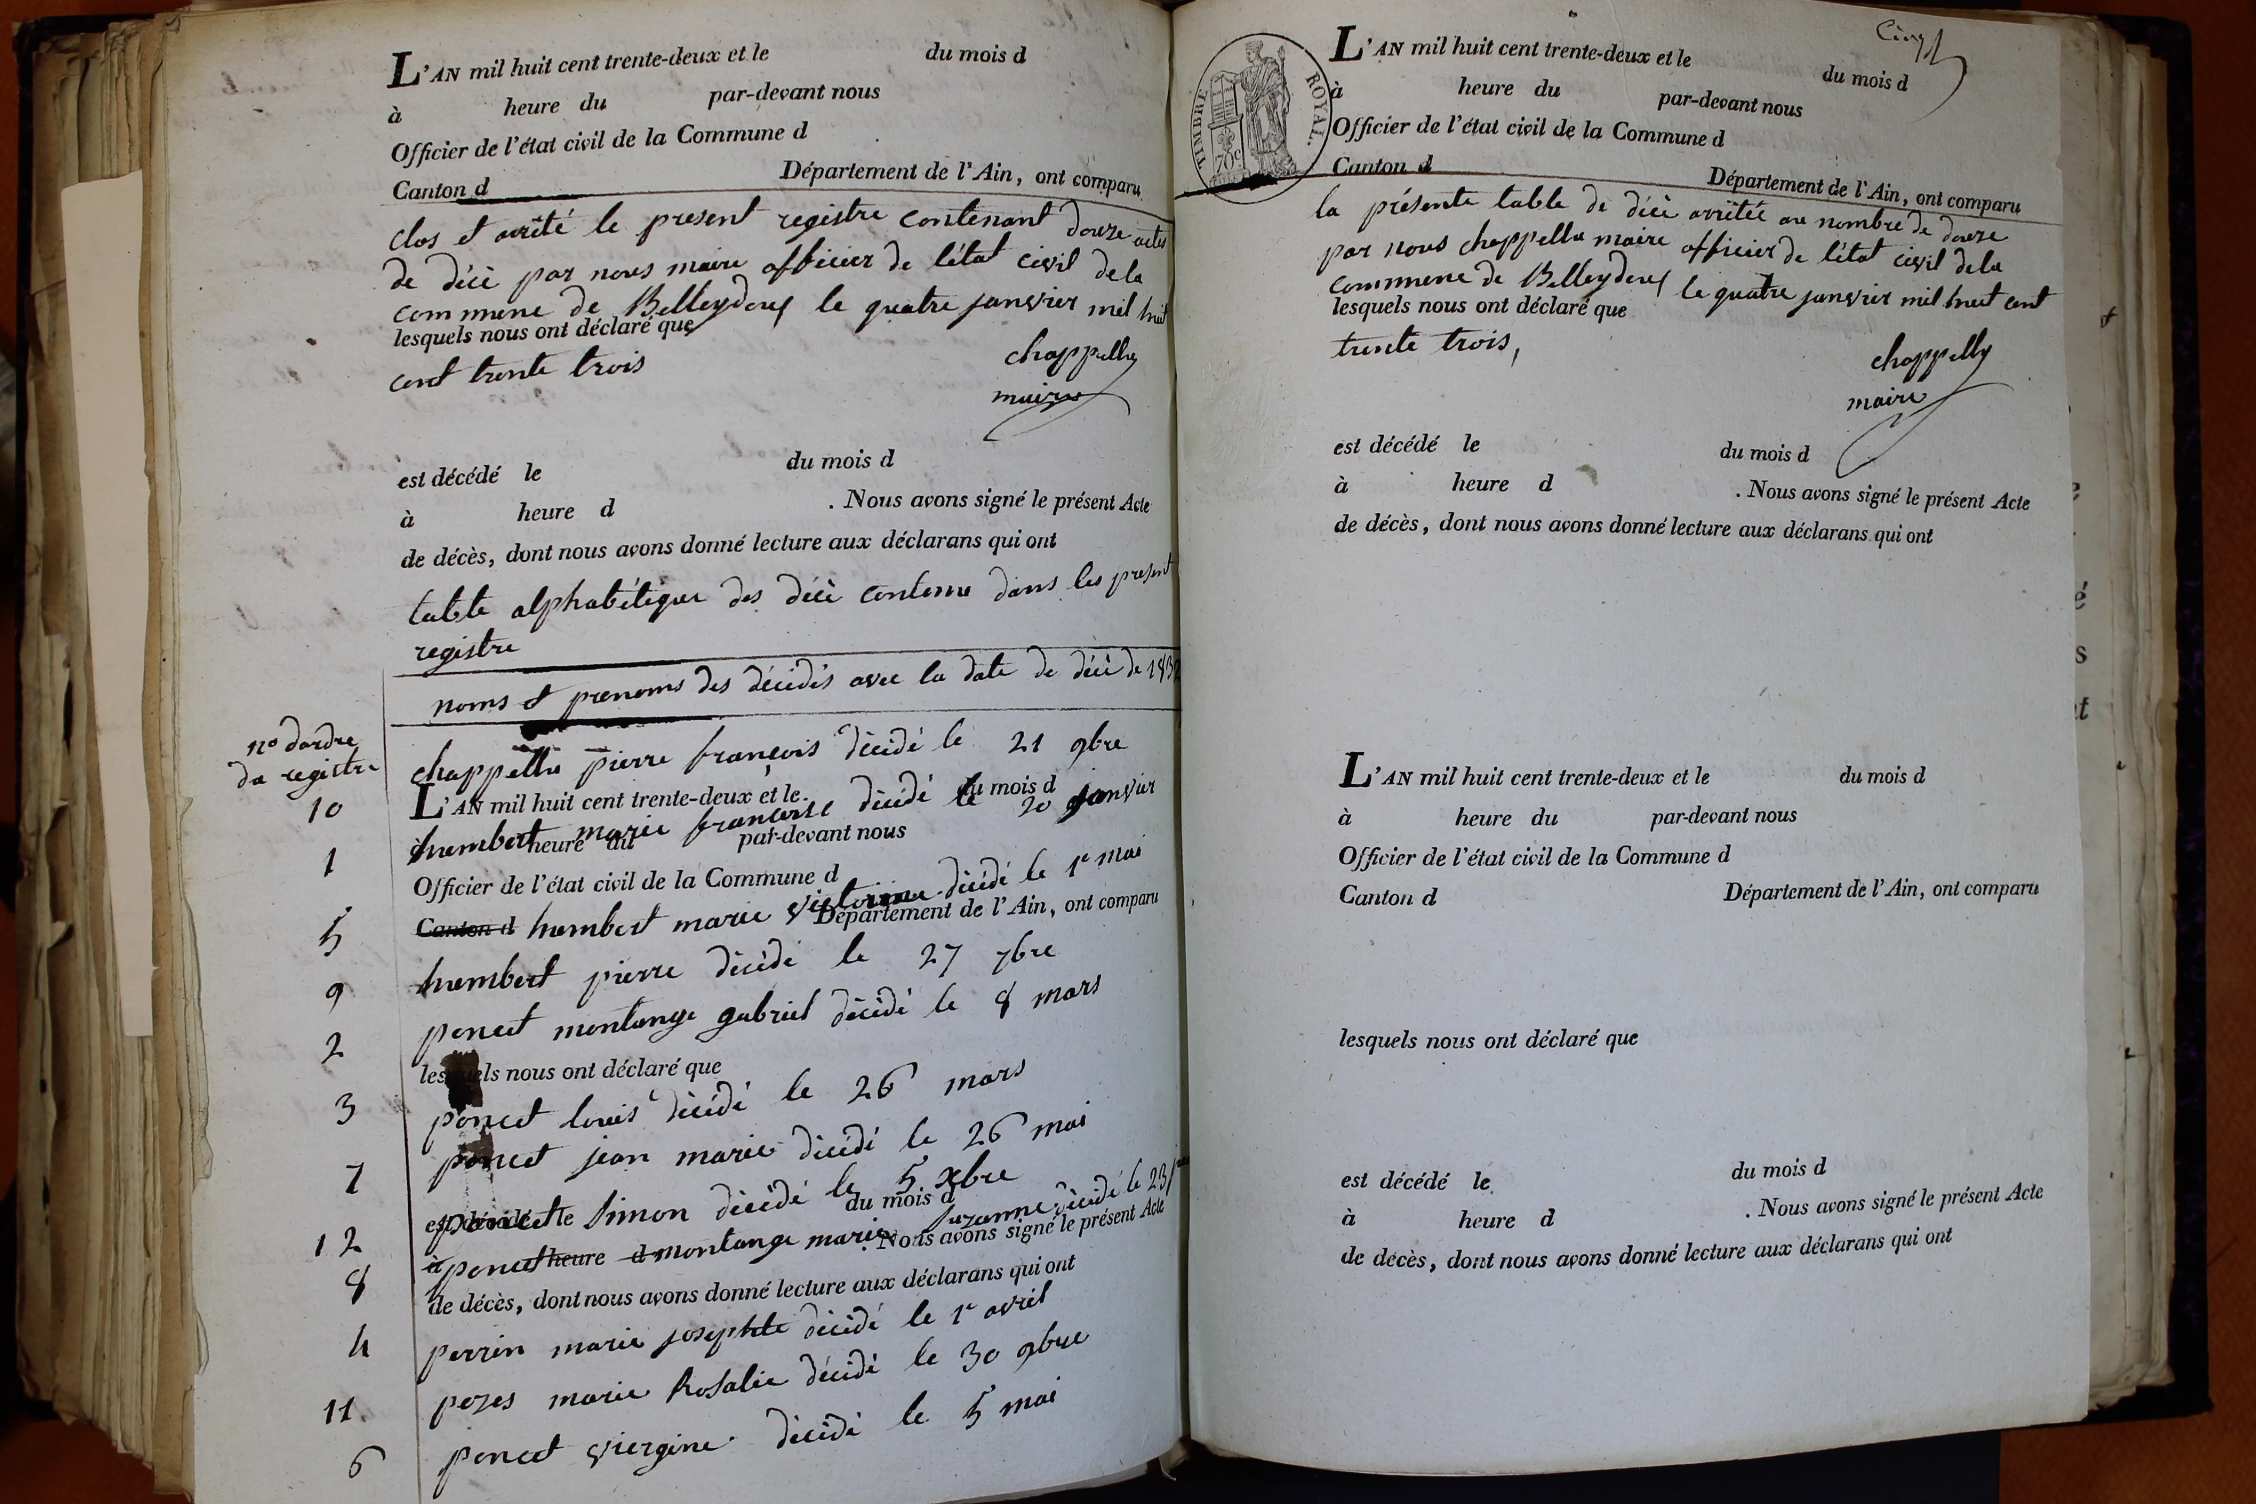 L'AN mil huit cent trente-deux et le du mois d
à heure du par-devant nous
Officier de l'état civil de la Commune d
Canton d Département de l'Ain, ont comparu
clos et arrêté le present registre contenant douze actes
de décè par nous maire officier de l'état civil de la
commune de Belleydoux le quatre janvier mil huit
lesquels nous ont déclaré que
cent trente trois
chappellu
maire
est décédé le du mois d
à heure d . Nous avons signé le présent Acte
de décès, dont nous avons donné lecture aux déclarans qui ont
table alphabétique des décè contenu dans les present
registre
noms et prenoms des décédés avec la date de décè de 1832
no dordre
du registre
10 chappellu pierre françois décédé le 21 9bre
L'AN mil huit cent trente-deux et le du mois d
1 humbert marie françoise décédé le 20 janvier
heure du par-devant nous
Officier de l'état civil de la Commune d
5 humbert marie victorine décédé le 1r mai
Canton d Département de l'Ain, ont comparu
9 humbert pierre décédé le 27 7bre
2 poncet montange gabriel décédé le 8 mars
lesquels nous ont déclaré que
3 poncet louis décédé le 26 mars
7 poncet jean marie décédé le 26 mai
12 poncet Simon décédé le 5 xbre
est décédé le du mois d
8 poncet montange marie suzanne décédé le 23
à heure d . Nous avons signé le présent Acte
de décès, dont nous avons donné lecture aux déclarans qui ont
4 perrin marie josephte décédé le 1r avril
11 pozes marie Rosalie décédé le 30 9bre
6 poncet viergine décédé le 5 mai
Cinq
TIMBRE ROYAL.
70c
L'AN mil huit cent trente-deux et le du mois d
à heure du par-devant nous
Officier de l'état civil de la Commune d
Canton d Département de l'Ain, ont comparu
la présente table de décè arrêtée au nombre de douze
par nous chappellu maire officier de l'état civil de la
commune de Belleydoux le quatre janvier mil huit cent
lesquels nous ont déclaré que
trente trois,
chappellu
maire
est décédé le du mois d
à heure d . Nous avons signé le présent Acte
de décès, dont nous avons donné lecture aux déclarans qui ont
L'AN mil huit cent trente-deux et le du mois d
à heure du par-devant nous
Officier de l'état civil de la Commune d
Canton d Département de l'Ain, ont comparu
lesquels nous ont déclaré que
est décédé le du mois d
à heure d . Nous avons signé le présent Acte
de décès, dont nous avons donné lecture aux déclarans qui ont